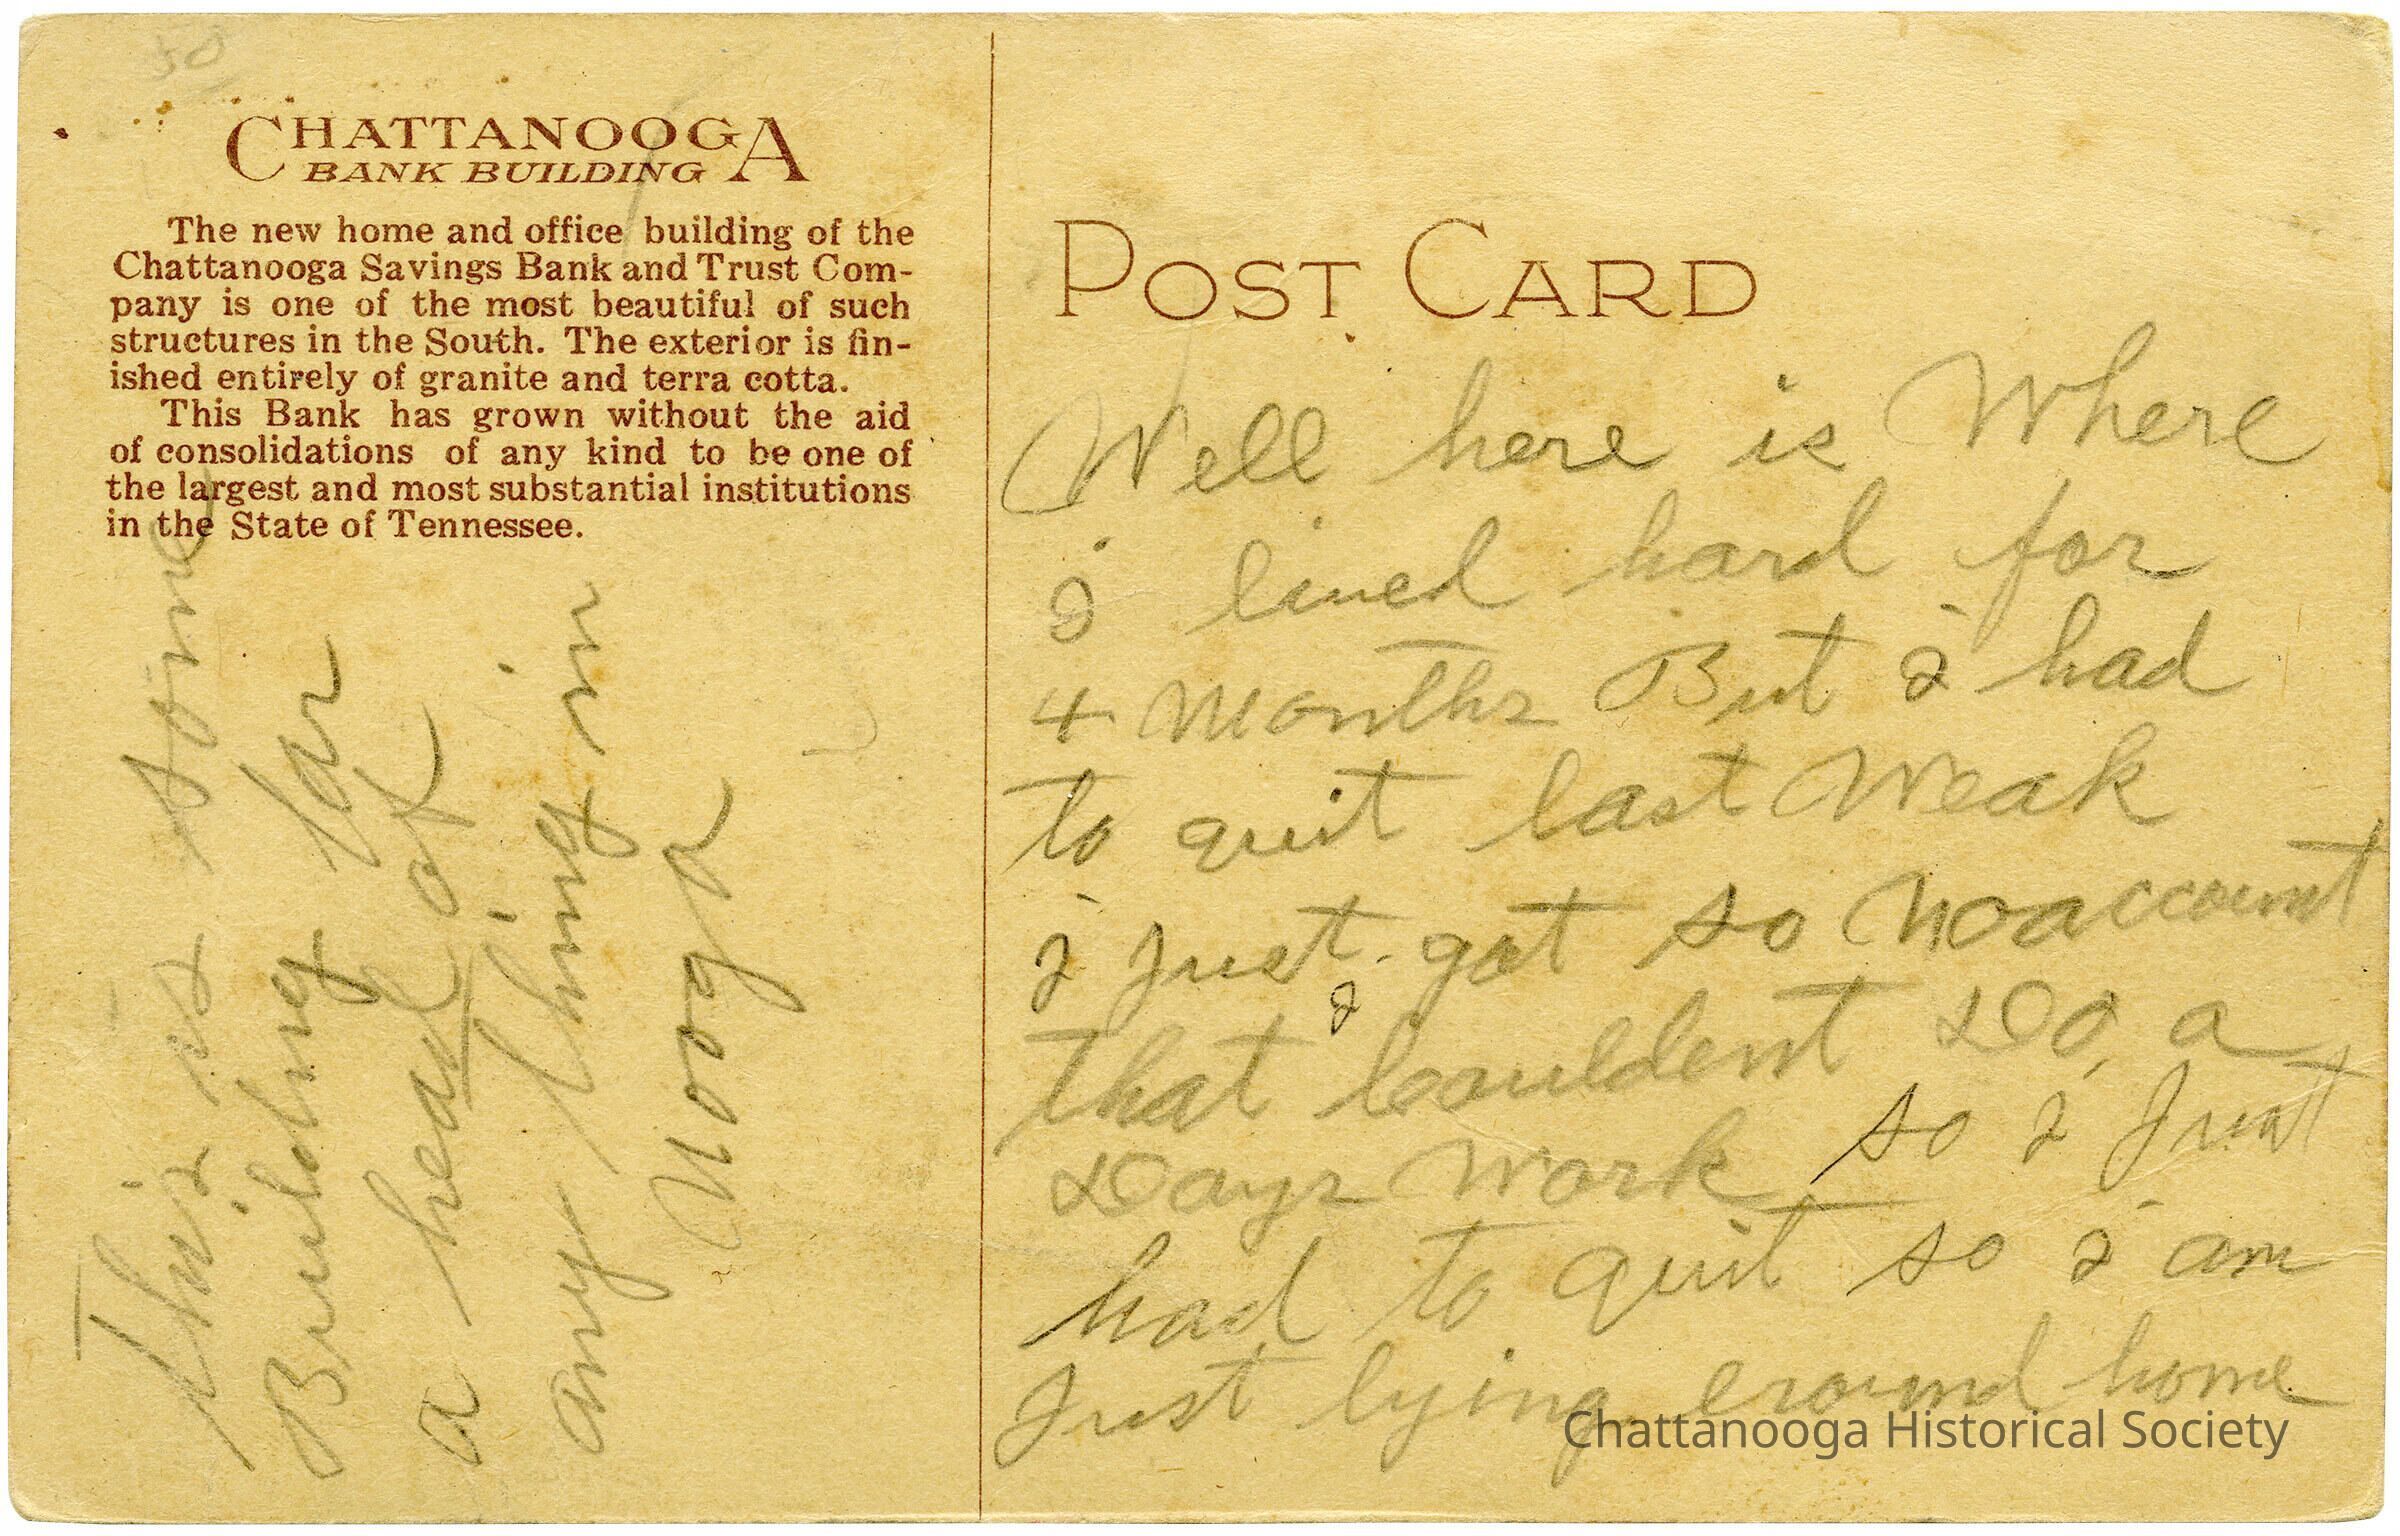 CHATTANOOGA
BANK BUILDING
The new home and office building of the
Chattanooga Savings Bank and Trust Com-
pany is one of the most beautiful of such
structures in the South. The exterior is fin-
ished entirely of granite and terra cotta.
This Bank has grown without the aid
of consolidations of any kind to be one of
the largest and most substantial institutions
in the State of Tennessee.
This is some
Building far
a head of
any thing in
Nooga
POST CARD
Well here is Where
I lived hard for
4 Months But I had
to quit last Weak
I Just got so Noaccount
that I couldent Do a
Days Work so I Just
had to quit so I am
Just lying eround home
Chattanooga Historical Society